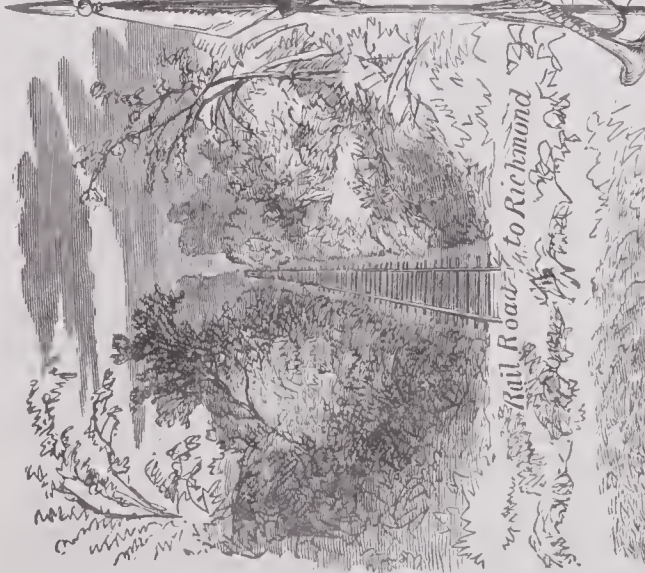 Rail Road to Richmond